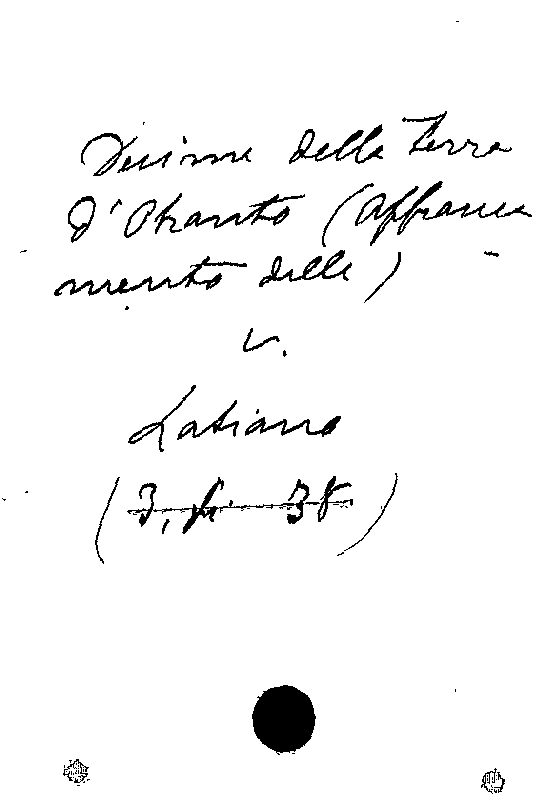 Decime della Terra
d'Otranto (Affranca
mento delle)
v.
Latiano
(3, fi 38)